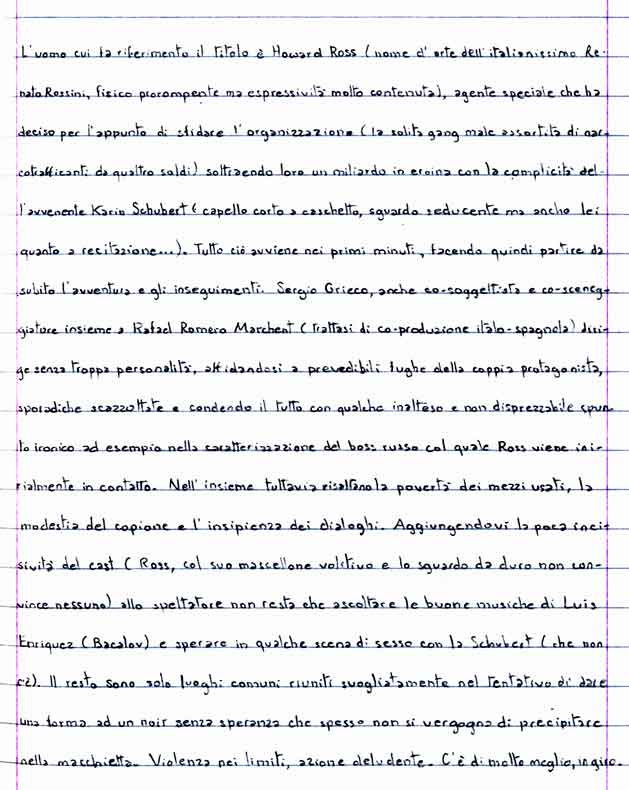 L'uomo cui fa riferimento il titolo è Howard Ross (nome d'arte dell'italianissimo Re-
nato Rossini, fisico prorompente ma espressività molto contenuta), agente speciale che ha
deciso per l'appunto di sfidare l'organizzazione (la solita gang male assortita di nar-
cotrafficanti da quattro soldi) sottraendo loro un miliardo in eroina con la complicità del-
l'avvenente Karin Schubert (capello corto a caschetto, sguardo seducente ma anche lei
quanto a recitazione...). Tutto ciò avviene nei primi minuti, facendo quindi partire da
subito l'avventura e gli inseguimenti. Sergio Grieco, anche co-soggettista e co-sceneg-
giatore insieme a Rafael Romero Marchent (trattasi di co-produzione italo-spagnola) diri-
ge senza troppa personalità, affidandosi a prevedibili fughe della coppia protagonista,
sporadiche scazzottate e condendo il tutto con qualche inatteso e non disprezzabile spun
to ironico ad esempio nella caratterizzazione del boss russo col quale Ross viene ini-
zialmente in contatto. Nell'insieme tuttavia risaltano la povertà dei mezzi usati, la
modestia del copione e l'insipienza dei dialoghi. Aggiungendovi la poca inci-
sività del cast (Ross, col suo mascellone volitivo e lo sguardo da duro non con-
vince nessuno) allo spettatore non resta che ascoltare le buone musiche di Luis
Enriquez (Bacalov) e sperare in qualche scena di sesso con la Schubert (che non
c'è). Il resto sono solo luoghi comuni riuniti svogliatamente nel tentativo di dare
una forma ad un noir senza speranza che spesso non si vergogna di precipitare
nella macchietta. Violenza nei limiti, azione deludente. C'è di molto meglio, in giro.